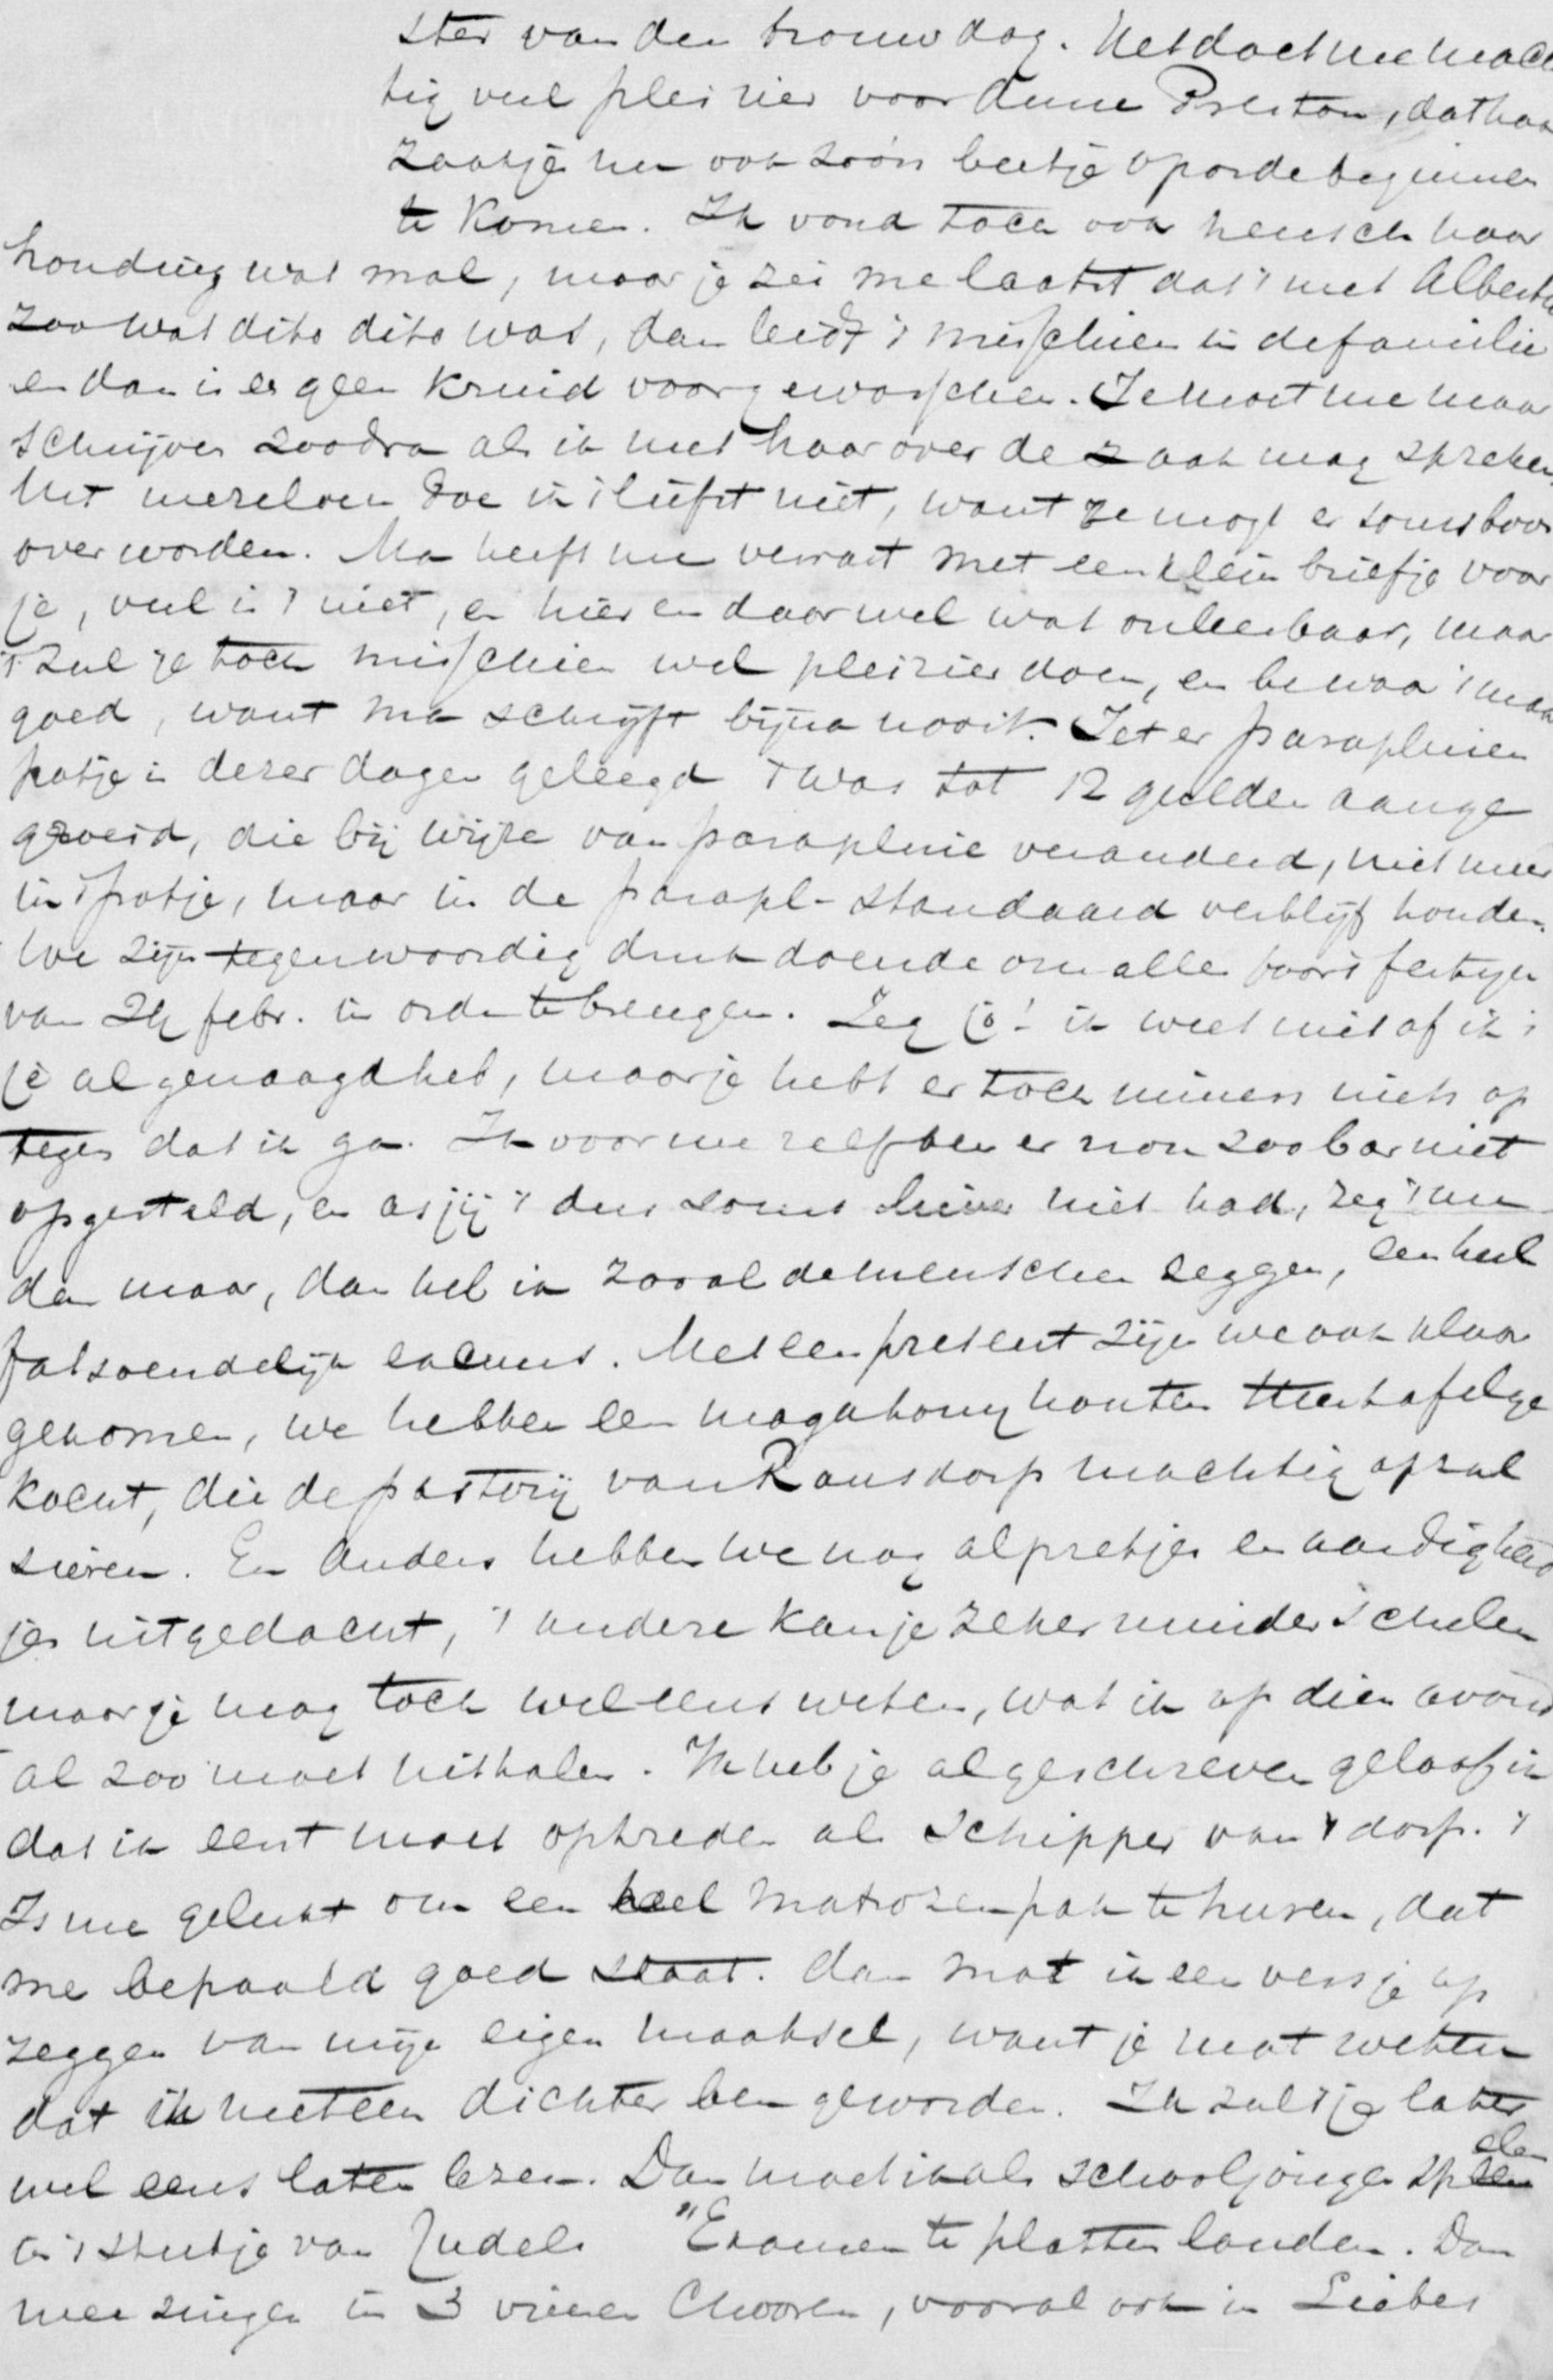 ster van den trouwdag. Het doet me mach
tig veel pleizier voor Anne Preston, dat haar
zaakje nu ook zoo'n beetje op orde beginnen
te komen. Ik vond toch ook heusch haar
houding wat mal, maar je zei me laatst dat 't met Alberta
zoo wat dito dito was, dan leidt 't misschien in de familie
en dan is er geen kruid voor gewasschen. Je moet me maar
schrijven zoodra als ik met haar over de zaak mag spreken,
uit mezelven doe ik 't liefst niet, want ze mogt er soms boos
over worden. Ma heeft me verrast met een klein briefje voor
je, veel is 't niet, en hier en daar wel wat onleesbaar, maar
't zal je toch misschien wel pleizier doen, en bewaar 't maar
goed, want ma schrijft bijna nooit. Jet er parapluien
potje is dezer dagen geleegd 't was tot 12 gulden aange
groeid, die bij wijze van parapluie veranderd, niet meer
in 't potje, maar in de parapl-standaard verblijf houden.
We zijn tegenwoordig druk doende om alles voor 't feestje
van 24 febr. in orde te brengen. Zeg jò! ik weet niet of ik 't
je al gevraagd heb, maar je hebt er toch immers niets op
tegen dat ik ga. Ik voor me zelf ben er non zoo bar niet
opgesteld, en as jij 't dus soms liever niet had, zeg 't me
dan maar, dan heb ik zooal de menschen zeggen, een heel
fatsoendelijk excuus. Met een present zijn we ook klaar
gekomen, we hebben een magahony houten theetafel ge
kocht, die de pastorij van Ransdorp machtig op zal
sieren. En anders hebben we nog al pretjes en aardigheid
jes uitgedacht, 't andere kan je zeker minder schelen
maar je mag toch wel eens weten, wat ik op dien avond
al zoo moet uithalen. Ik heb je al geschreven geloof ik
dat ik eerst moet optreden als Schipper van 't dorp. 't
Is me gelukt om een heel matrozenpak te huren, dat
me bepaald goed staat. dan mot ik een versje op
zeggen van mijn eigen maaksel, want je mot weten
dat ik meteen dichter ben geworden. Ik zal 't je later
wel eens laten lezen. Dan moet ik als schooljongen spelen
in 't stukje van Judels "Examen te platten landen. Dan
mee zingen in 3 vieren Chooren, vooral ook in Liebes